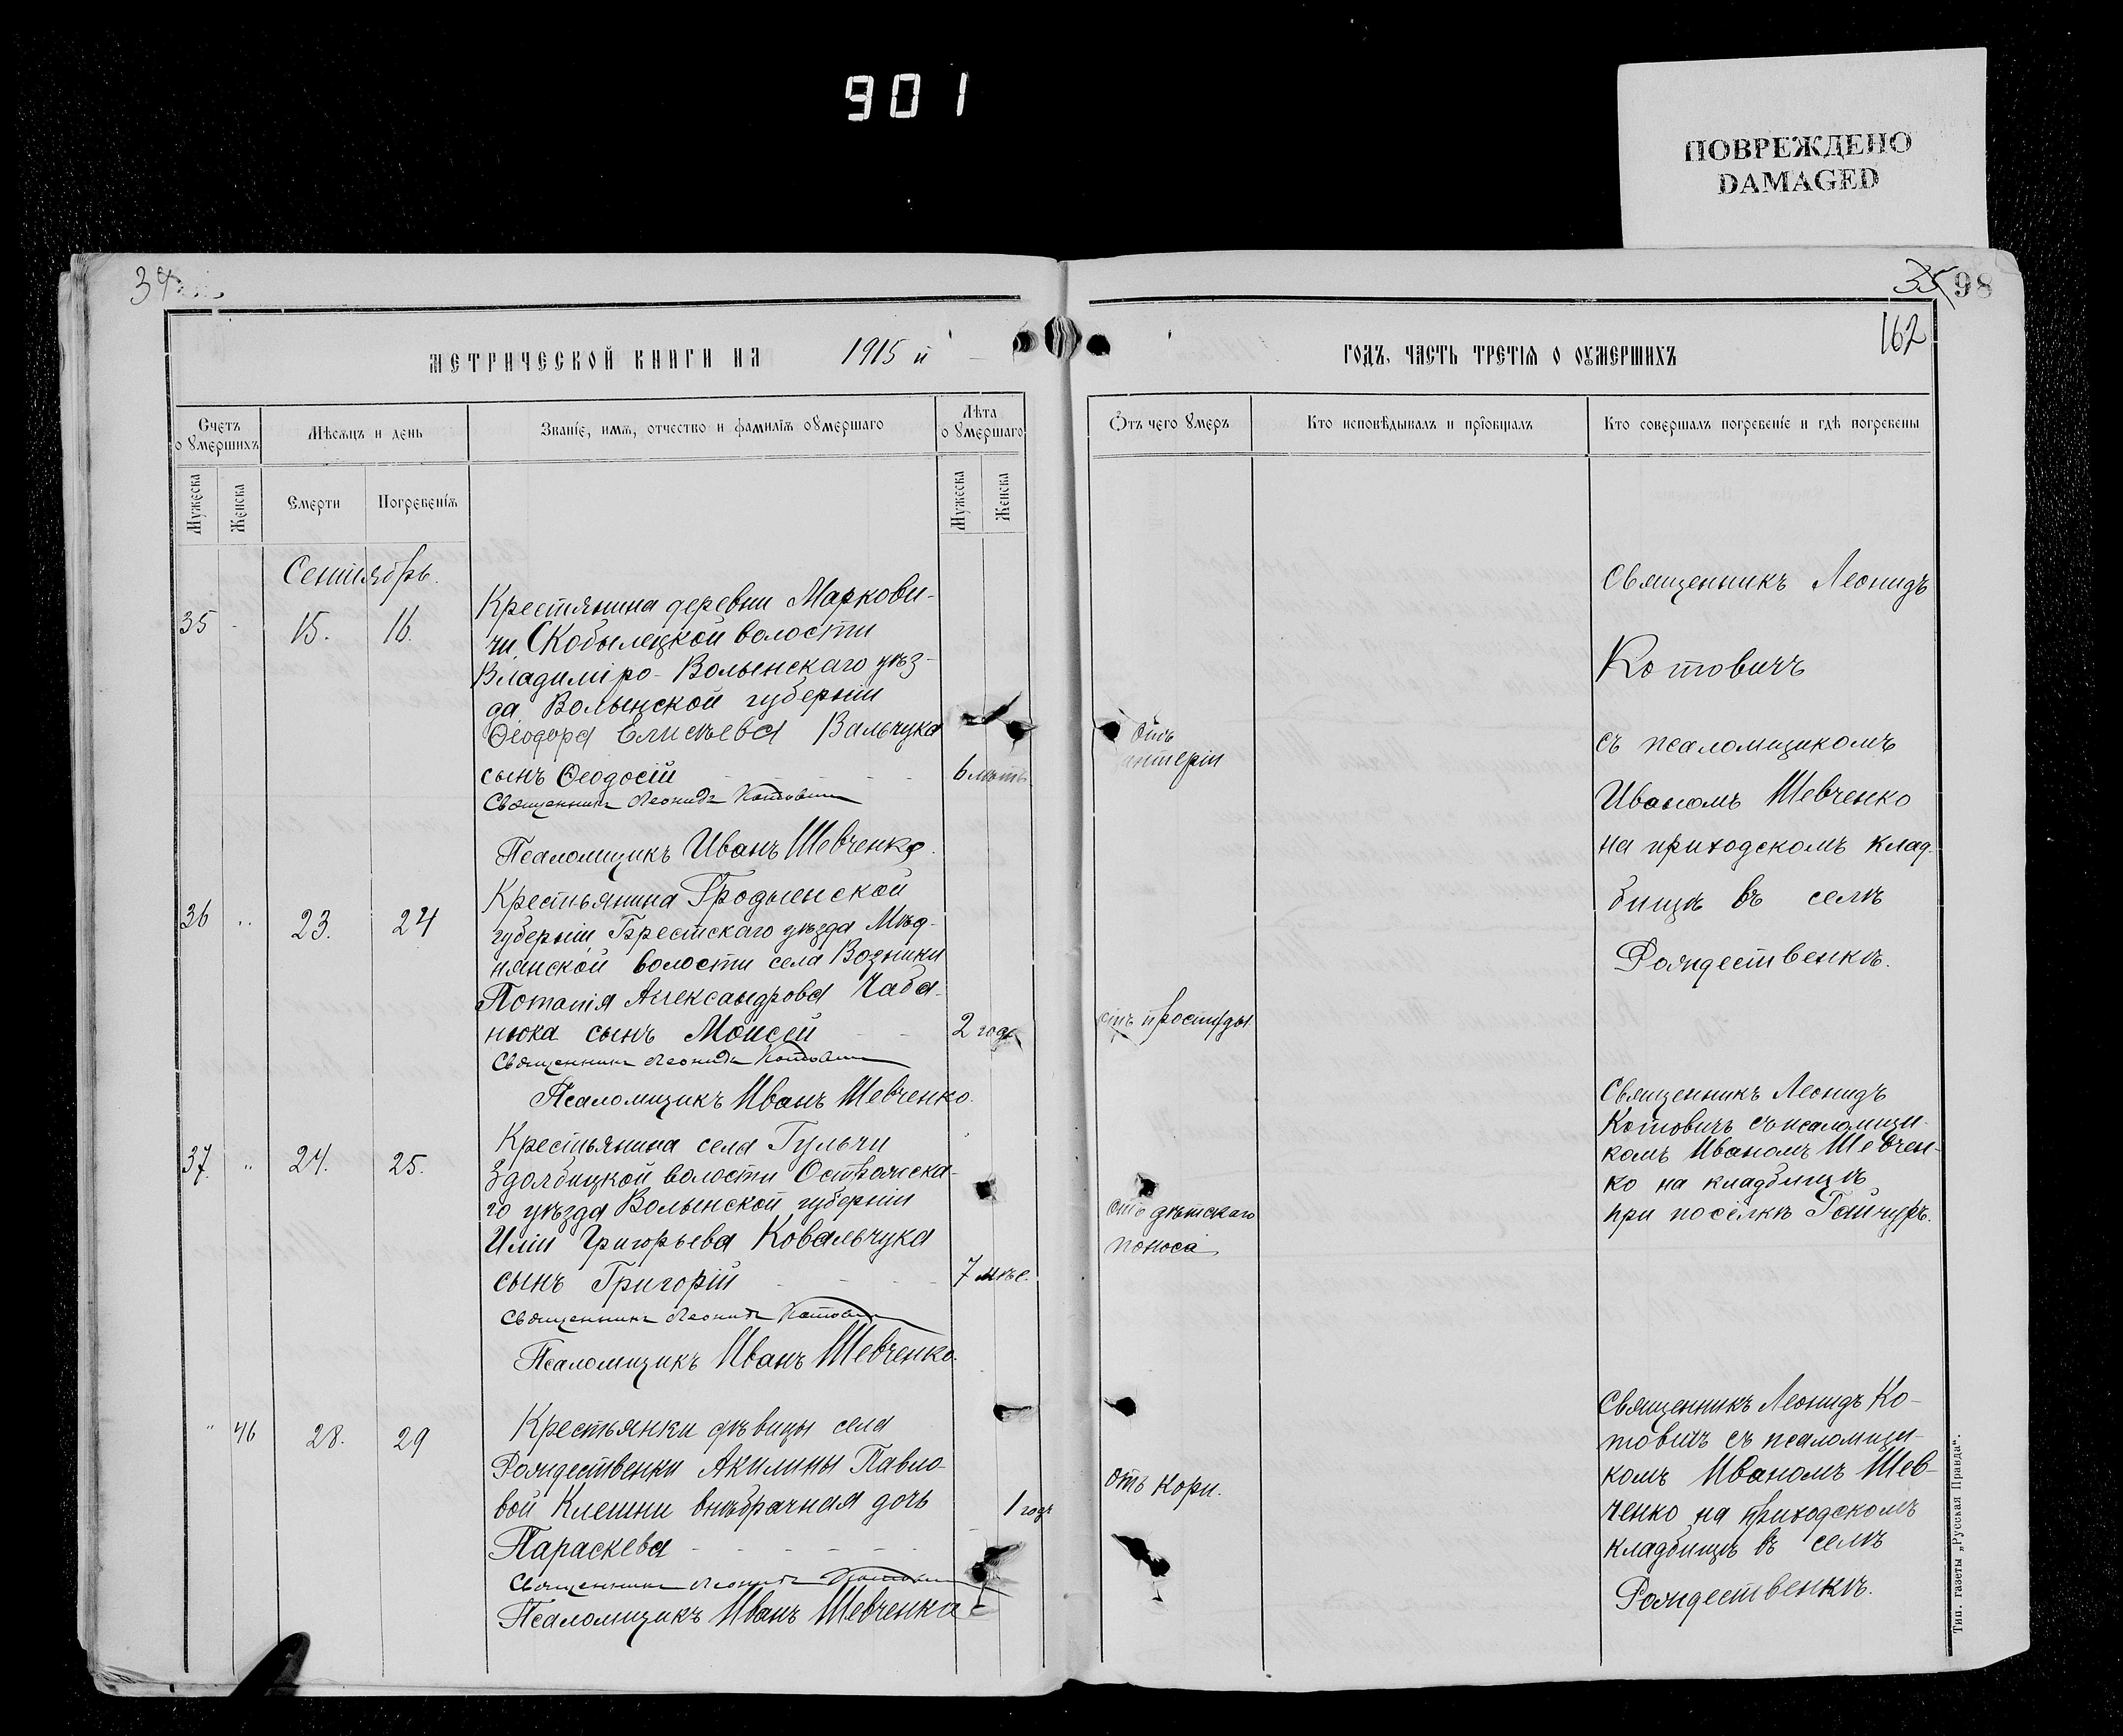 901
ПОВРЕЖДЕНО
DAMAGED
34
35 98
162
МЕТРИЧЕСКОЙ КНИГИ НА 1915 й
ГОДЪ, ЧАСТЬ ТРЕТІѦ О ОУМЕРШИХЪ
Счетъ о умершихъ
Мѣсѧцъ и день
Званіе, имѧ, отчество и фамиліѧ оумершаго
Лѣта оумершаго
Мужеска
Женска
Смерти
Погребеніѧ
Мужеска
Женска
Ѿтъ чего умеръ
Кто исповѣдывалъ и пріобщалъ
Кто совершалъ погребеніе и гдѣ погребены
Сентябрь.
35 - 15. 16.
Крестянина деревни Маркови-
чи, Скобылецкой волости
Владиміро-Волынскаго уѣз-
да Волынской губерніи
Ѳеодора Елисѣева Вальчука
сынъ Ѳеодосій 6 лѣтъ
отъ
Священникъ Леонидъ Котовичъ
Псаломщикъ Иванъ Шевченко.
Священникъ Леонидъ
Котовичъ
съ псаломщикомъ
Иваномъ Шевченко
на приходскомъ клад-
бищѣ въ селѣ
Рождественкѣ.
36 .. 23. 24
Крестьянина Гродненской
губерніи Брестскаго уѣзда Мѣд-
нянской волости села Возники
Потапія Александрова Чаба-
нюка сынъ Моисей 2 года
отъ простуды
Священникъ Леонидъ Котовичъ
Псаломщикъ Иванъ Шевченко.
37. " 24. 25.
Крестьянина села Гульчи
Здолбицкой волости Острожска-
го уѣзда Волынской губерніи
Иліи Григорьева Ковальчука
сынъ Григорій 7 мѣс.
отъ дѣтскаго
поноса
Священникъ Леонидъ Котовичъ
Псаломщикъ Иванъ Шевченко.
Священникъ Леонидъ
Котовичъ съ псаломщи-
комъ Иваномъ Шевчен-
ко на кладбищѣ
при поселкѣ Гайчуръ.
" 46 28. 29
Крестьянки дѣвицы села
Рождественки Акилины Павло-
вой Клешни внѣбрачная дочь
Параскева 1 годъ
отъ кори.
Священникъ Леонидъ Котовичъ
Псаломщикъ Иванъ Шевченко
Священникъ Леонидъ Ко-
товичъ съ псаломщи-
комъ Иваномъ Шев-
ченко на приходскомъ
кладбищѣ въ селѣ
Рождественкѣ.
Тип. газеты „Русская Правда“.